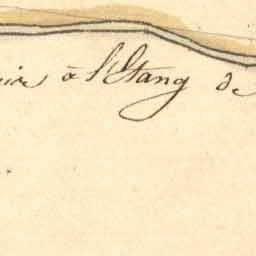 à l'Etang de